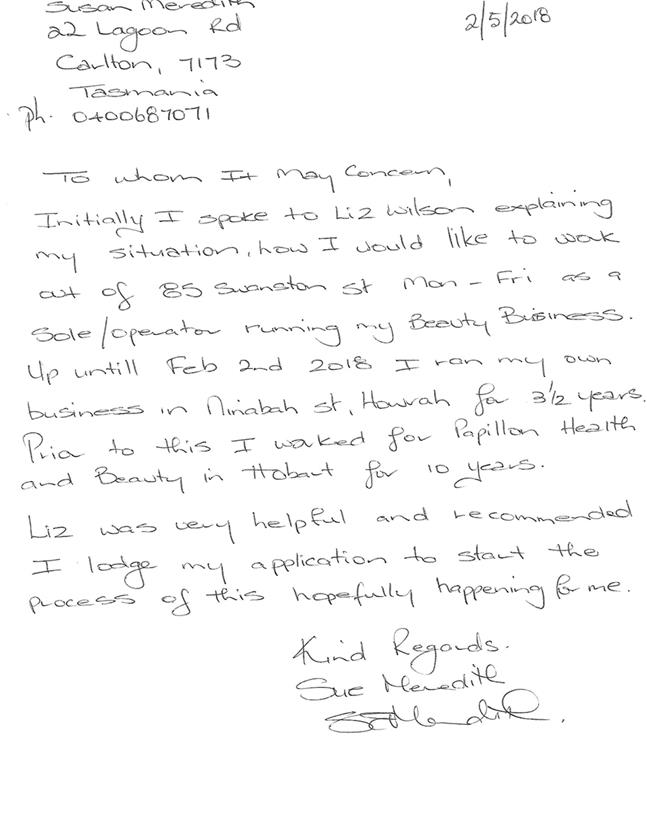 Susan Meredith
22 Lagoon Rd
2/5/2018
Carlton, 7173
Tasmania
ph. 0400687071
To whom It May Concern,
Initially I spoke to Liz Wilson explaining
my situation, how I would like to work
out of 85 Swanston st Mon - Fri as a
Sole/operator running my Beauty Business.
Up untill Feb 2nd 2018 I ran my own
business in Niniabah st, Howrah for 3 1/2 years.
Prior to this I worked for Papillon Health
and Beauty in Hobart for 10 years.
Liz was very helpful and recommended
I lodge my application to start the
process of this hopefully happening for me.
Kind Regards.
Sue Meredith